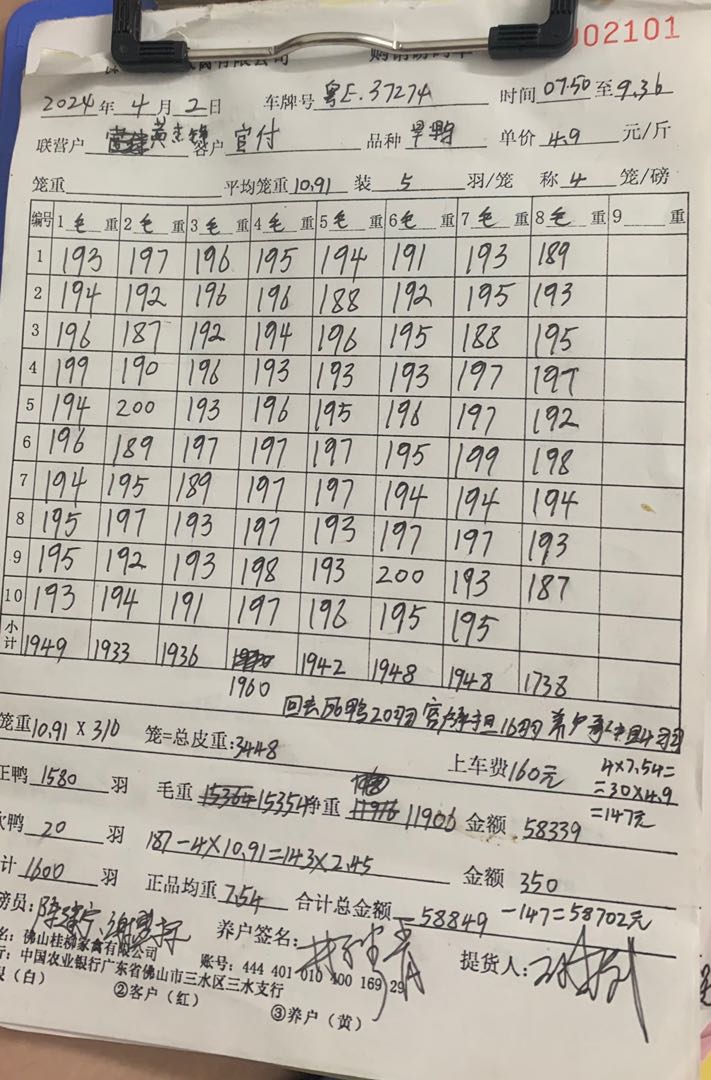 002101
2024年 4月 2日 车牌号 粤E.37274 时间 07.50 至 9.36
联营户 黄志锦 客户 官付 品种 旱鸭 单价 4.9 元/斤
笼重 平均笼重 10.91 装 5 羽/笼 称 4 笼/磅
编号 1 毛 重 2 毛 重 3 毛 重 4 毛 重 5 毛 重 6 毛 重 7 毛 重 8 毛 重 9 重
1 193 197 196 195 194 191 193 189
2 194 192 196 196 188 192 195 193
3 196 187 192 194 196 195 188 195
4 199 190 196 193 193 193 197 197
5 194 200 193 196 195 196 197 192
6 196 189 197 197 197 195 199 198
7 194 195 189 197 197 194 194 194
8 195 197 193 197 193 197 197 193
9 195 192 193 198 193 200 193 187
10 193 194 191 197 196 195 195
小计 1949 1933 1936 1960 1942 1948 1948 1738
回去死鸭20羽 客户承担16羽 养户承担4羽
笼重 10.91 × 316 笼=总皮重: 3448 上车费 160元 4×7.54=
=30×4.9
=147元
正鸭 1580 羽 毛重 15354 净重 11906 金额 58339
次鸭 20 羽 187-4×10.91=143×2.45 金额 350
计 1600 羽 正品均重 7.54 合计总金额 =58849 -147=58702元
磅员: 养户签名: 提货人:
名: 佛山桂柳家禽有限公司
行: 中国农业银行广东省佛山市三水区三水支行 账号: 444 401 010 400 169 29
(白) ②客户(红) ③养户(黄)